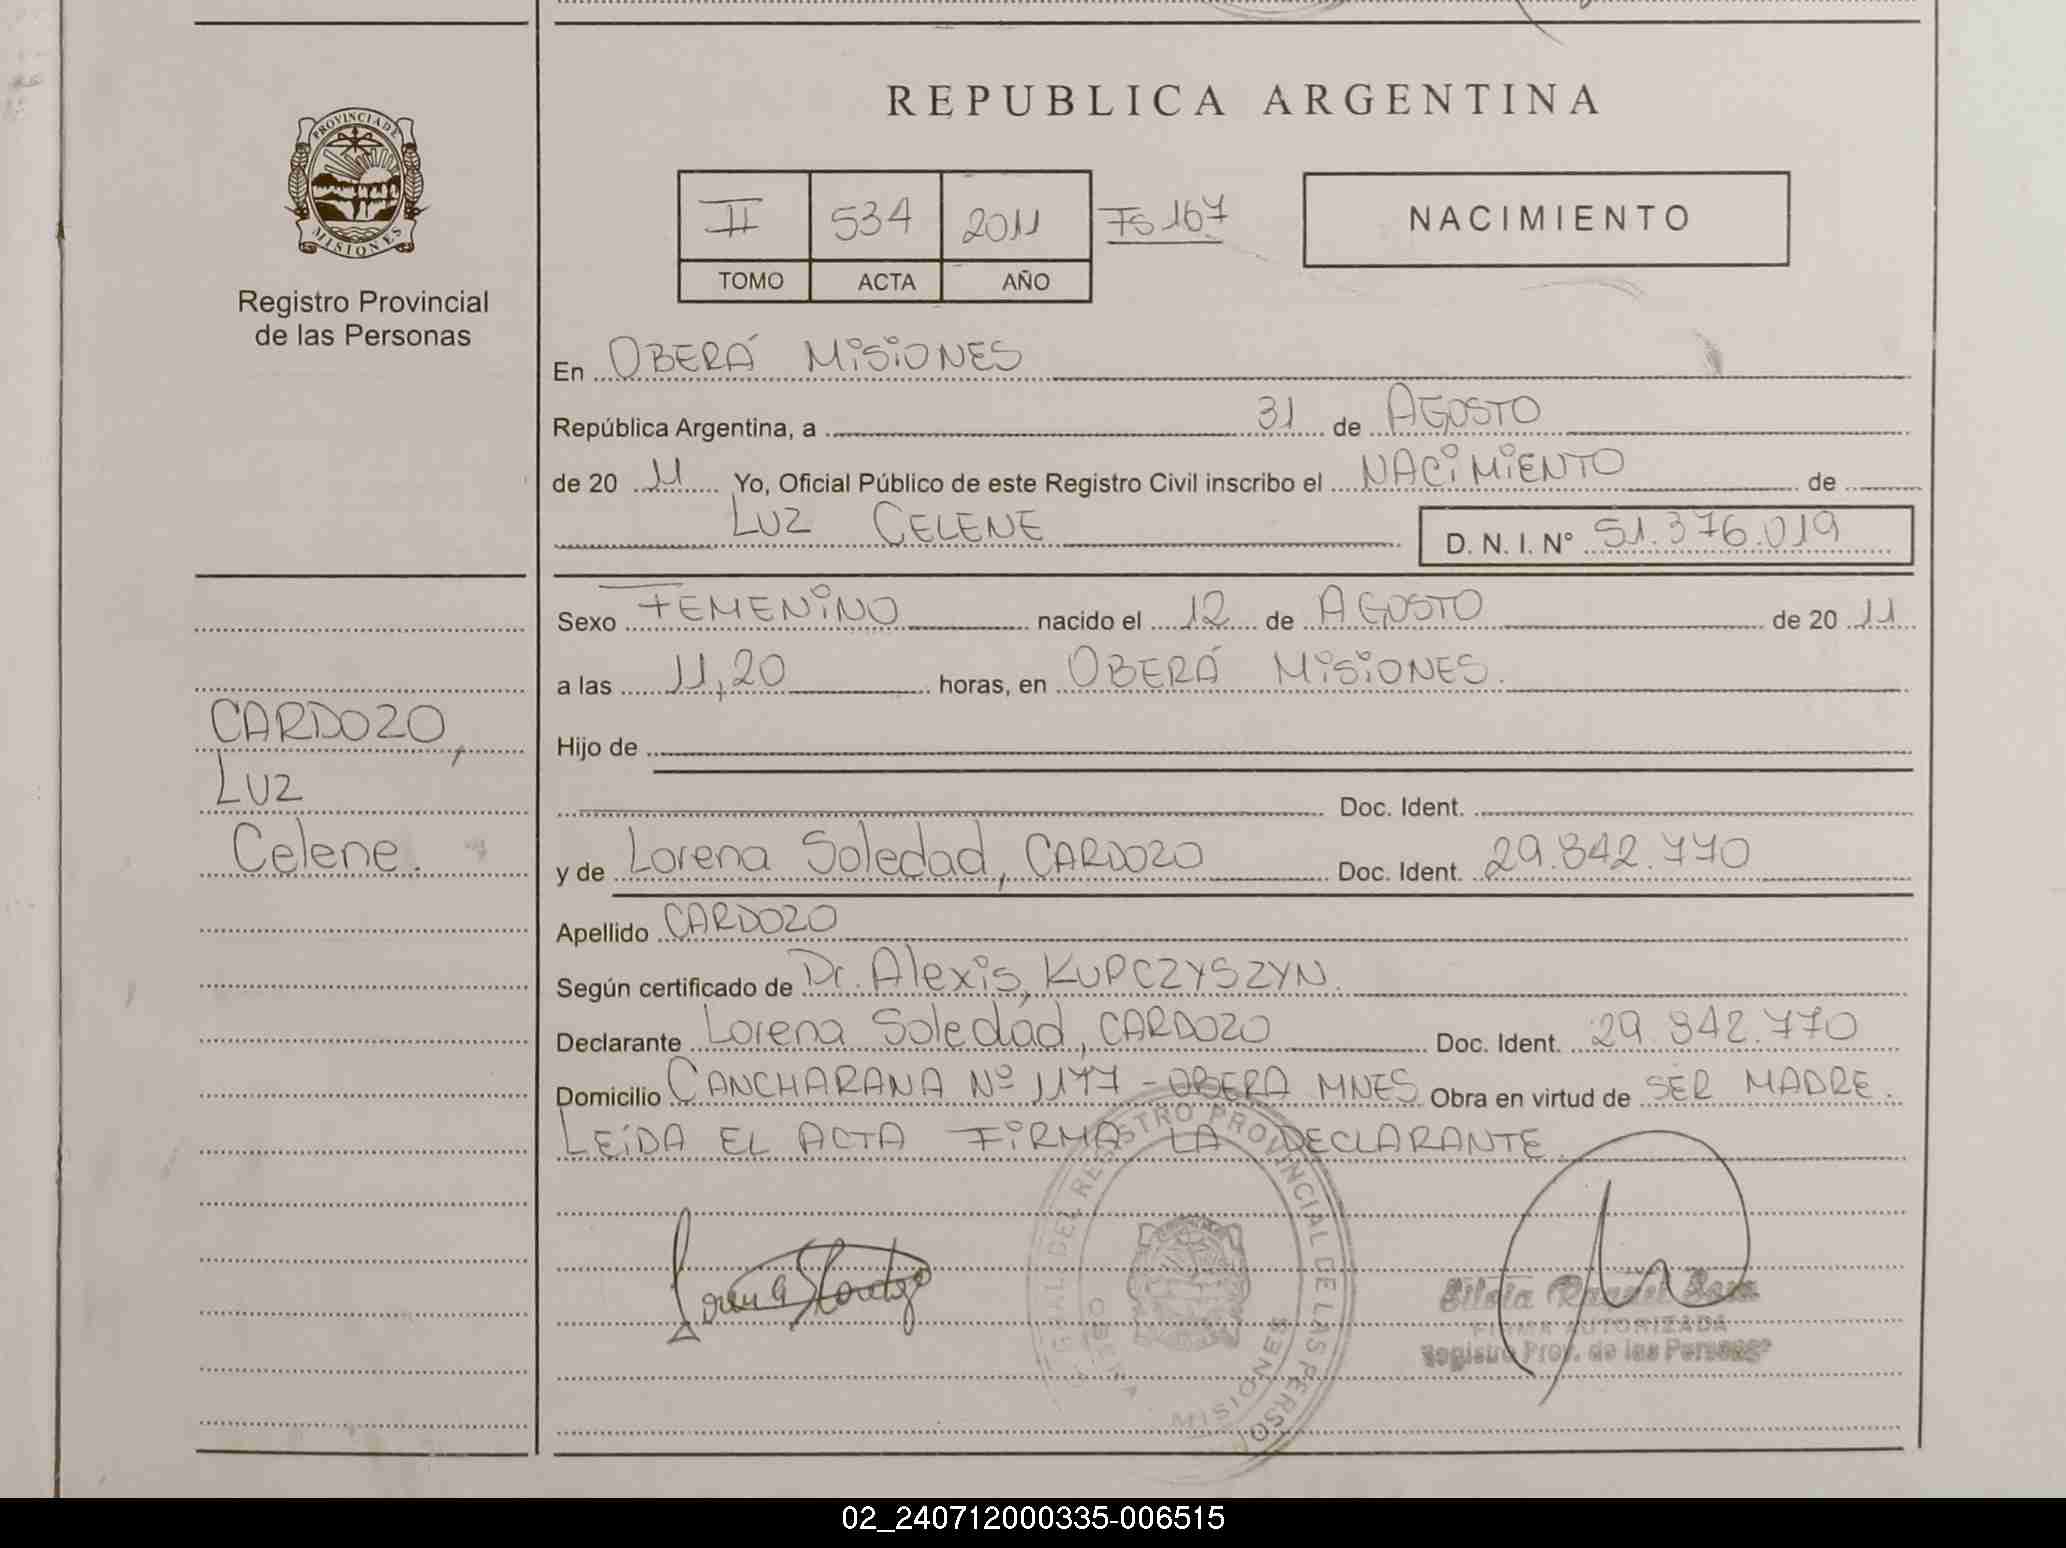 REPUBLICA ARGENTINA
PROVINCIA DE
MISIONES
Registro Provincial
de las Personas
II 534 2011 Fs 167
TOMO ACTA AÑO
NACIMIENTO
En OBERÁ MISIONES
República Argentina, a 31 de AGOSTO
de 20 11 Yo, Oficial Público de este Registro Civil inscribo el NACIMIENTO de
LUZ CELENE D. N. I. N° 51.376.019
Sexo FEMENINO nacido el 12 de AGOSTO de 20 11
a las 11,20 horas, en OBERÁ MISIONES.
CARDOZO,
Luz
Celene.
Hijo de
Doc. Ident.
y de Lorena Soledad, CARDOZO Doc. Ident. 29.842.770
Apellido CARDOZO
Según certificado de Dr. Alexis, KUPCZYSZYN.
Declarante Lorena Soledad, CARDOZO Doc. Ident. 29.842.770
Domicilio CANCHARANA Nº 1177 - OBERA MNES Obra en virtud de SER MADRE.
LEÍDA EL ACTA FIRMA LA DECLARANTE
GRAL. DEL REGISTRO PROVINCIAL DE LAS PERSO
OBERA
MISIONES
FIRMA AUTORIZADA
Registro Prov. de las Personas
02_240712000335-006515